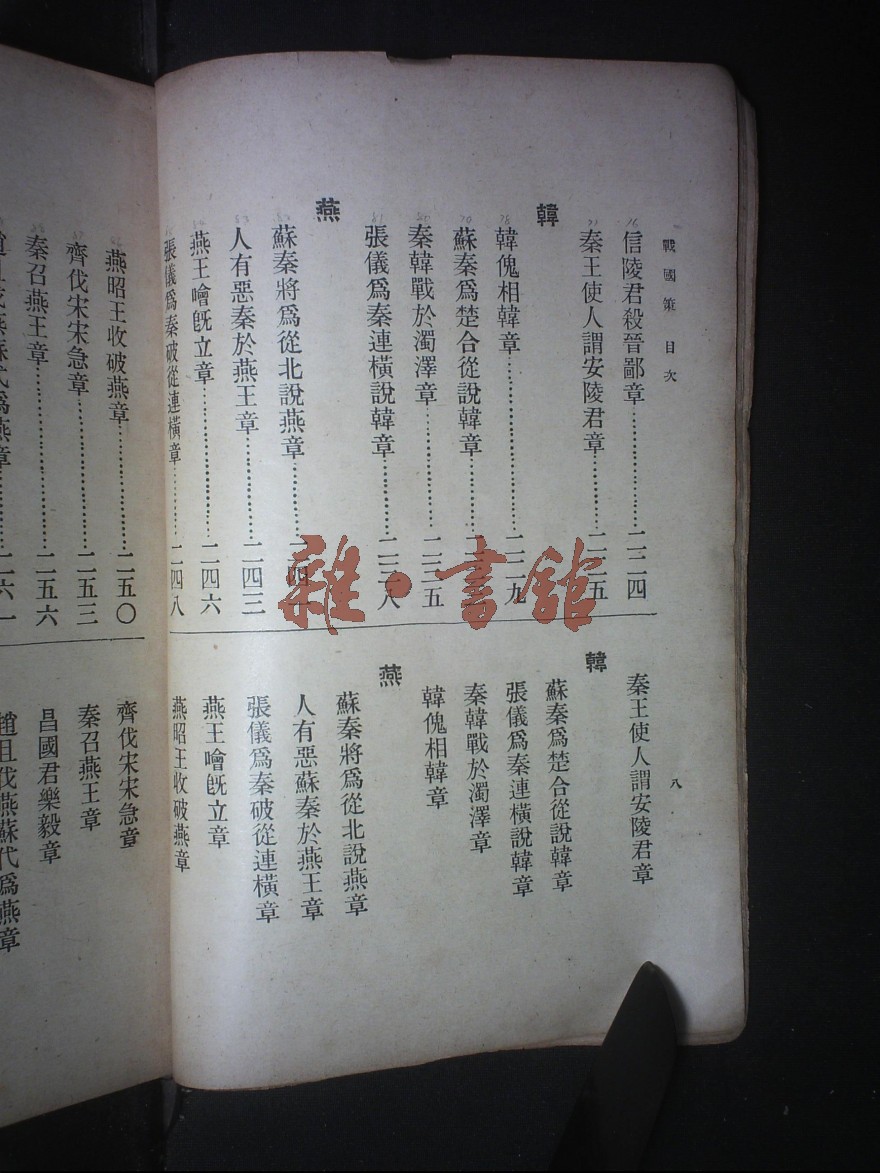 戰國策 目次
八
信陵君殺晉鄙章…………二二四
秦王使人謂安陵君章……二二五
韓
韓傀相韓章………………二二九
蘇秦爲楚合從說韓章………
秦韓戰於濁澤章…………二三五
張儀爲秦連橫說韓章……二三八
燕
蘇秦將爲從北說燕章……二四一
人有惡秦於燕王章………二四三
燕王噲旣立章……………二四六
張儀爲秦破從連橫章……二四八
秦王使人謂安陵君章
韓
蘇秦爲楚合從說韓章
張儀爲秦連橫說韓章
秦韓戰於濁澤章
韓傀相韓章
燕
蘇秦將爲從北說燕章
人有惡蘇秦於燕王章
張儀爲秦破從連橫章
燕王噲旣立章
燕昭王收破燕章
燕昭王收破燕章…………二五〇
齊伐宋宋急章……………二五三
秦召燕王章………………二五六
伐燕蘇代爲燕章……二六一
齊伐宋宋急章
秦召燕王章
昌國君樂毅章
趙且伐燕蘇代爲燕章
雜·書館